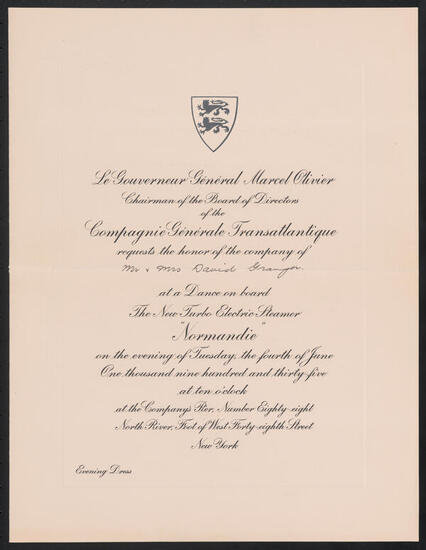 Le Gouverneur Général Marcel Olivier
Chairman of the Board of Directors
of the
Compagnie Générale Transatlantique
requests the honor of the company of
Mr & Mrs David Granger
at a Dance on board
The New Turbo Electric Steamer
"Normandie"
on the evening of Tuesday, the fourth of June
One thousand nine hundred and thirty-five
at ten o'clock
at the Company's Pier, Number Eighty-eight
North River, Foot of West Forty-eighth Street
New York
Evening Dress